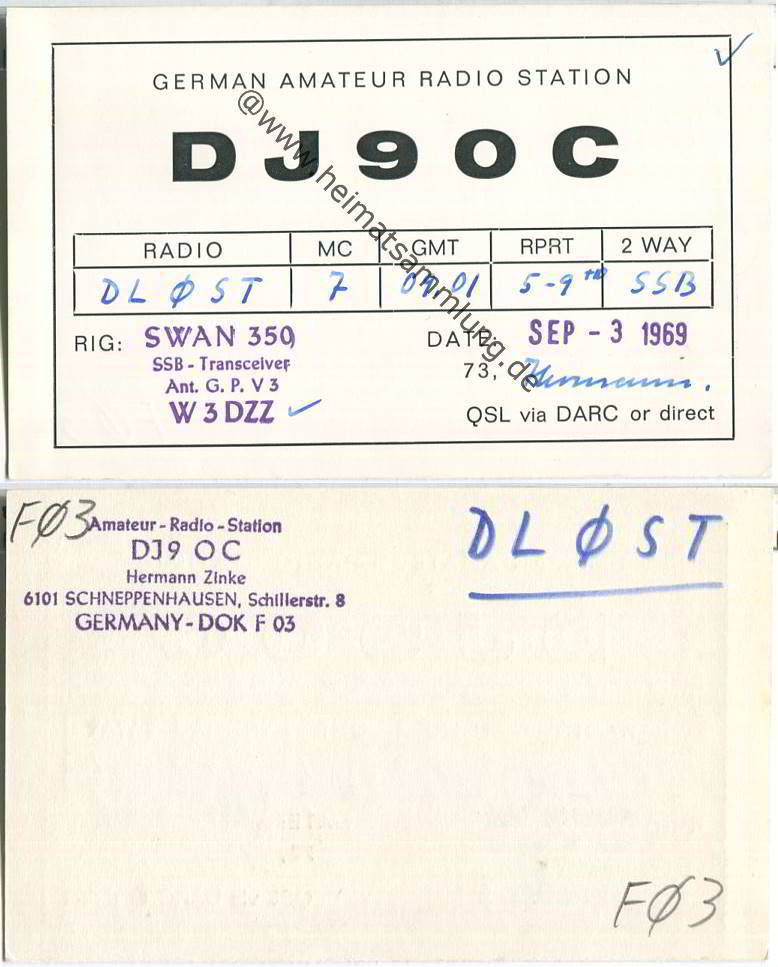 GERMAN AMATEUR RADIO STATION
DJ9OC
RADIO MC GMT RPRT 2 WAY
DLØST 7 09.01 5-9 SSB
RIG: SWAN 350 DATE: SEP - 3 1969
SSB - Transceiver
Ant. G. P. V 3
73, Hermann.
W 3 DZZ
QSL via DARC or direct
@www.heimatsammlung.de
FØ3
Amateur - Radio - Station
DJ9 OC
Hermann Zinke
6101 SCHNEPPENHAUSEN, Schillerstr. 8
GERMANY - DOK F 03
DLØST
FØ3